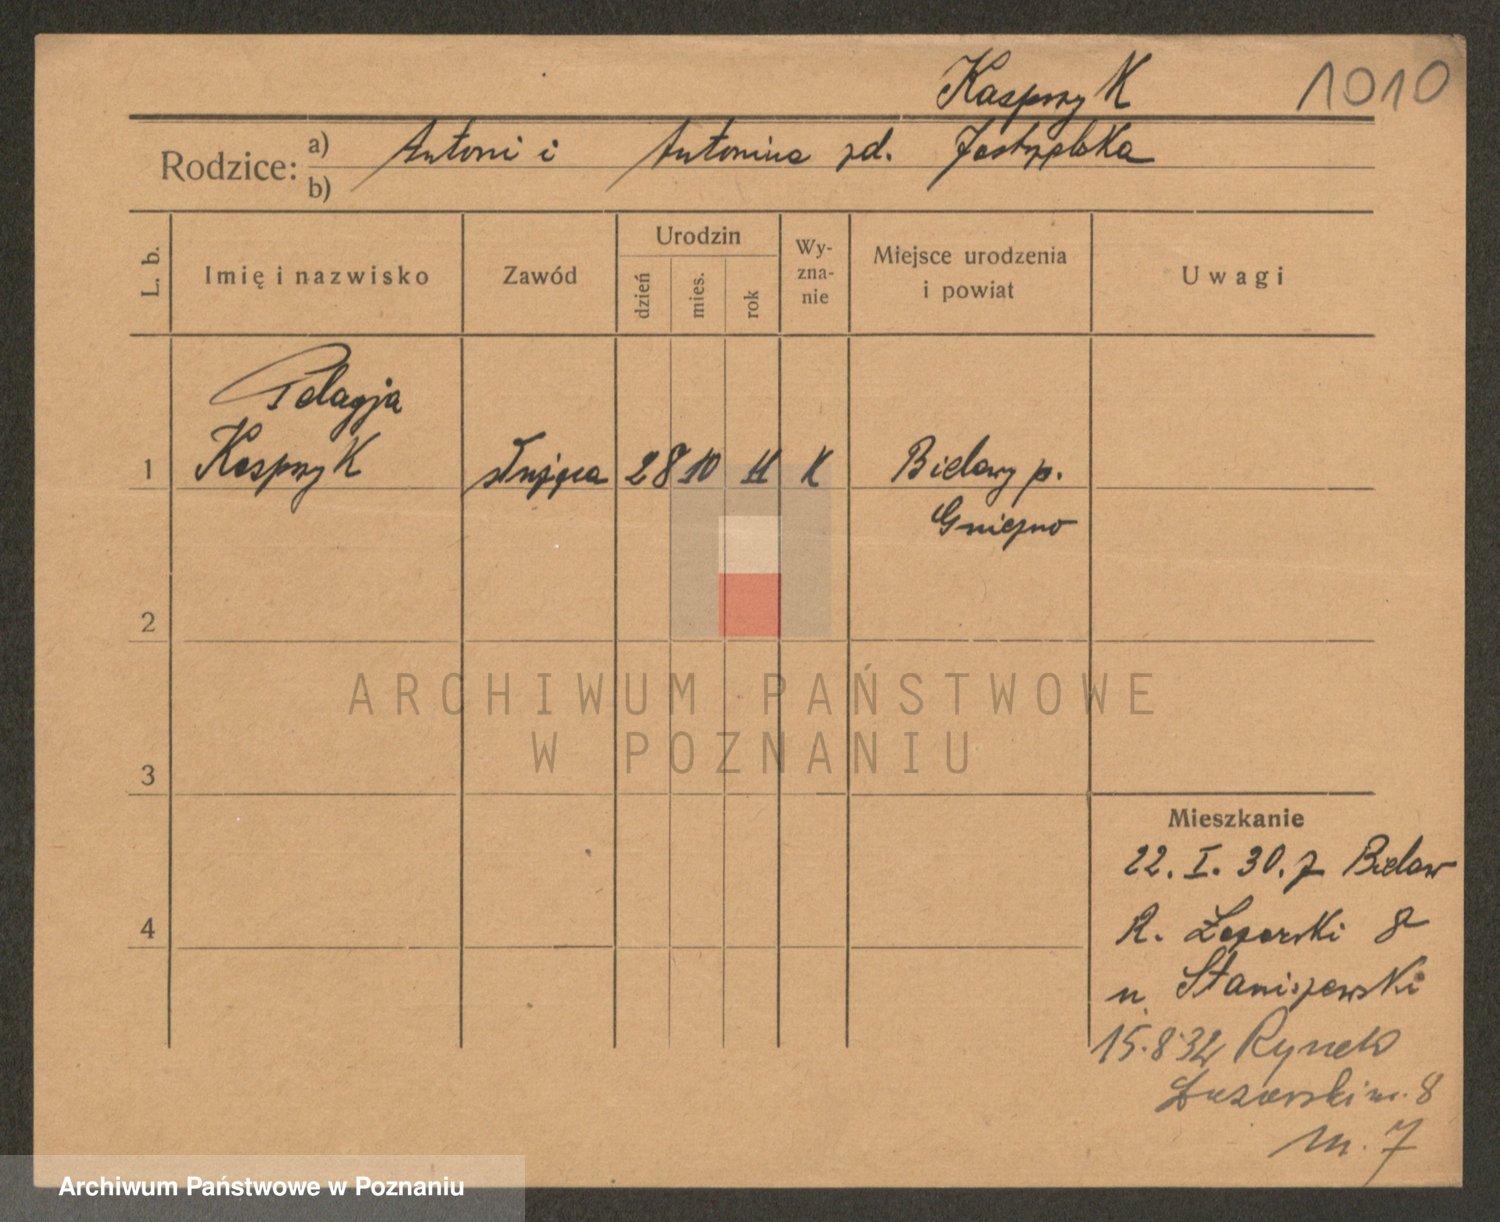 Kasprzyk 1010
Rodzice: a) Antoni i Antonina zd.
b)
L. b.
Imię i nazwisko
Zawód
Urodzin
dzień
mies.
rok
Wy-
zna-
nie
Miejsce urodzenia
i powiat
Uwagi
Pelagja
1 Kasprzyk służąca 28 10 11 K Bielawy p.
Gniezno
2
3
4
ARCHIWUM PAŃSTWOWE
W POZNANIU
Mieszkanie
22. I. 30. z Bielaw
R. Łazarski 8
u Staniszewski
15.8.32 Rynek
Łazarski nr. 8
m. 7
Archiwum Państwowe w Poznaniu